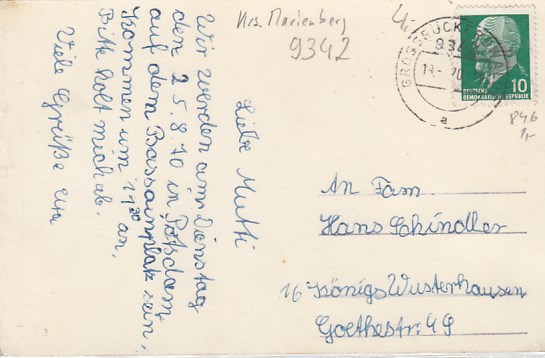 Krs. Marienberg
9342
GROSSRÜCKERSWALDE
934
a
10
DEUTSCHE
DEMOKRATISCHE REPUBLIK
846
1,-
Liebe Mutti
Wir werden am Dienstag
den 25.8.70 in Potsdam
auf dem Bassainplatz sein,
kommen um 11³⁰ an.
Bitte holt mich ab.
Viele Grüße von
An Fam.
Hans Schindler
16 Königs Wusterhausen
Goethestr. 49